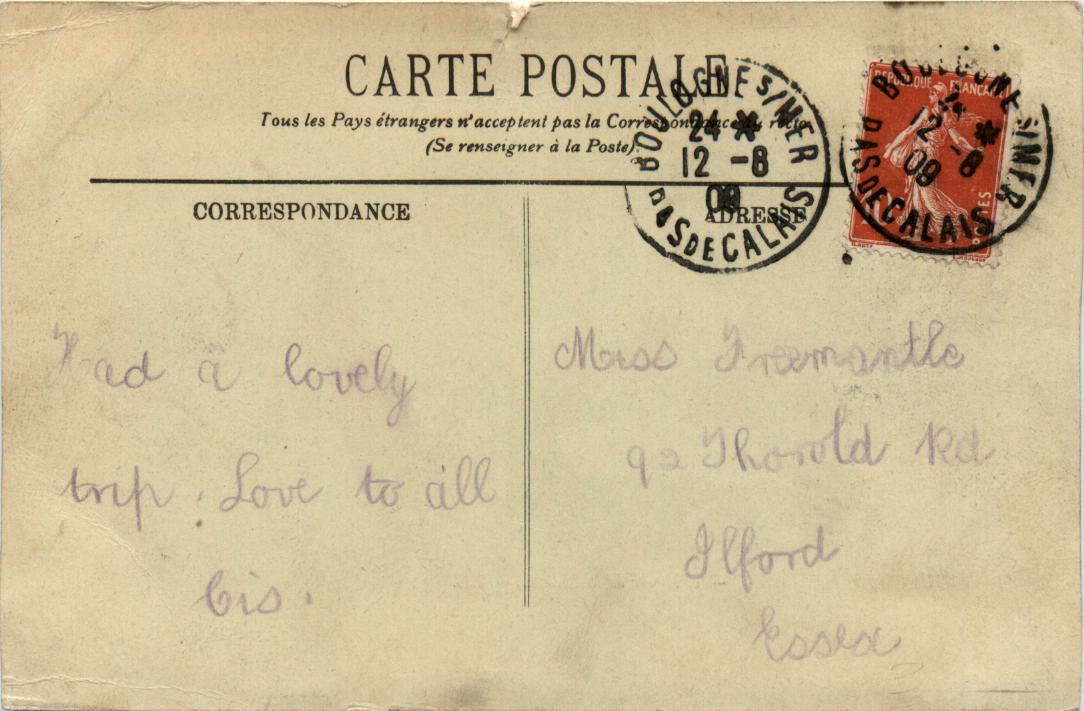 CARTE POSTALE
Tous les Pays étrangers n'acceptent pas la Correspondance au recto
(Se renseigner à la Poste).
BOULOGNE S/MER
24 *
12 -8
09
PAS DE CALAIS
REPUBLIQUE FRANÇAISE
BOULOGNE S/MER
24 *
12 -8
09
PAS DE CALAIS
POSTES
CORRESPONDANCE
ADRESSE
Had a lovely
trip. Love to all
Cis.
Miss Freemantle
92 Thorold Rd
Ilford
Essex